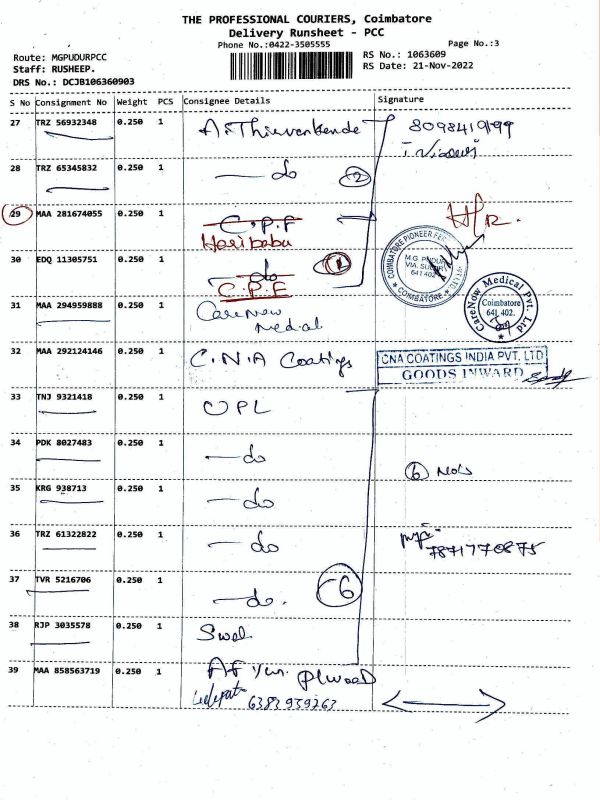 THE PROFESSIONAL COURIERS, Coimbatore
Delivery Runsheet - PCC
Phone No.:0422-3505555
Page No.:3
Route: MGPUDURPCC
Staff: RUSHEEP.
DRS No.: DCJB106360903
RS No.: 1063609
RS Date: 21-Nov-2022
S No Consignment No Weight PCS Consignee Details Signature
27 TRZ 56932348 0.250 1 8098419199
28 TRZ 65345832 0.250 1 do 2
29 MAA 281674055 0.250 1 C.P.F
Haribabu
30 EDQ 11305751 0.250 1 do 1
C.P.F
COIMBATORE PIONEER
M.G. PUDUR
641 402
COIMBATORE
31 MAA 294959888 0.250 1 CareNow
Medial
CareNow Medical Pvt. Ltd
Coimbatore
641 402.
32 MAA 292124146 0.250 1 C.N.A Coatings
CNA COATINGS INDIA PVT. LTD
GOODS INWARD
33 TNJ 9321418 0.250 1 OPL
34 PDK 8027483 0.250 1 do
6 Nos
35 KRG 938713 0.250 1 do
36 TRZ 61322822 0.250 1 do
7871770875
37 TVR 5216706 0.250 1 do. 6
38 RJP 3035578 0.250 1 Swel
39 MAA 858563719 0.250 1 plwood
6383939263